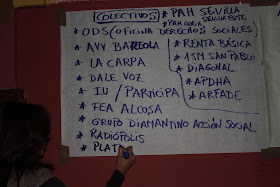 COLECTIVOS
* ODS (OFICINA DERECHOS SOCIALES)
* AVV BARZOLA
* LA CARPA
* DALE VOZ
* IU / PARTICIPA
* FEA ALCOSA
* GRUPO DIAMANTINO ACCIÓN SOCIAL
* RADIÓPOLIS
* PLAT
* PAH SEVILLA
* PAH CORIA SEVILLA ESTE
* RENTA BÁSICA
* ASM SAN PABLO
* DIAGONAL
* APDHA
* ARFADE